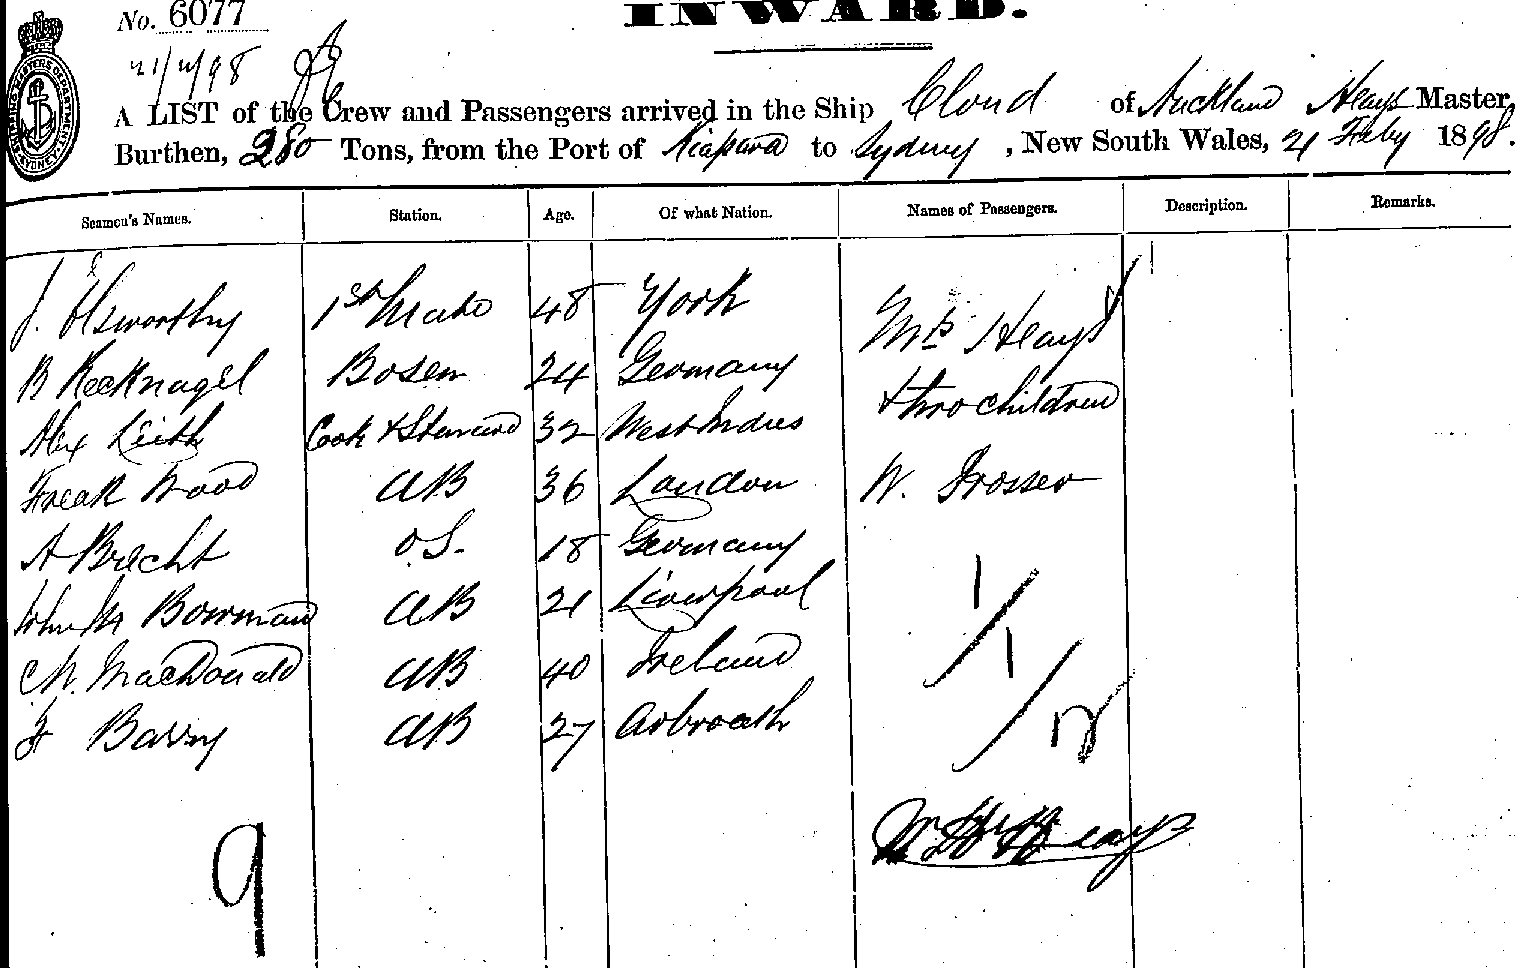 No. 6077
INWARD.
21/2/98
A LIST of the Crew and Passengers arrived in the Ship Cloud of Auckland Heays Master,
Burthen, 280 Tons, from the Port of to Sydney, New South Wales, 21 Feby 1898.
Seamen's Names. Station. Age. Of what Nation. Names of Passengers. Description. Remarks.
J. Elsworthy 1st Mate 48 York Mrs Heays
B Recknagel Bosen 24 Germany + two children
Alex Leith Cook + Steward 32 West Indies
Frank Wood AB 36 London W. Prosser
A Brecht O.S. 18 Germany
John M Bowman AB 21 Liverpool 1
M. MacDonald AB 40 Ireland / 1
Barry AB 27 Arbroath / 2
9
Heays